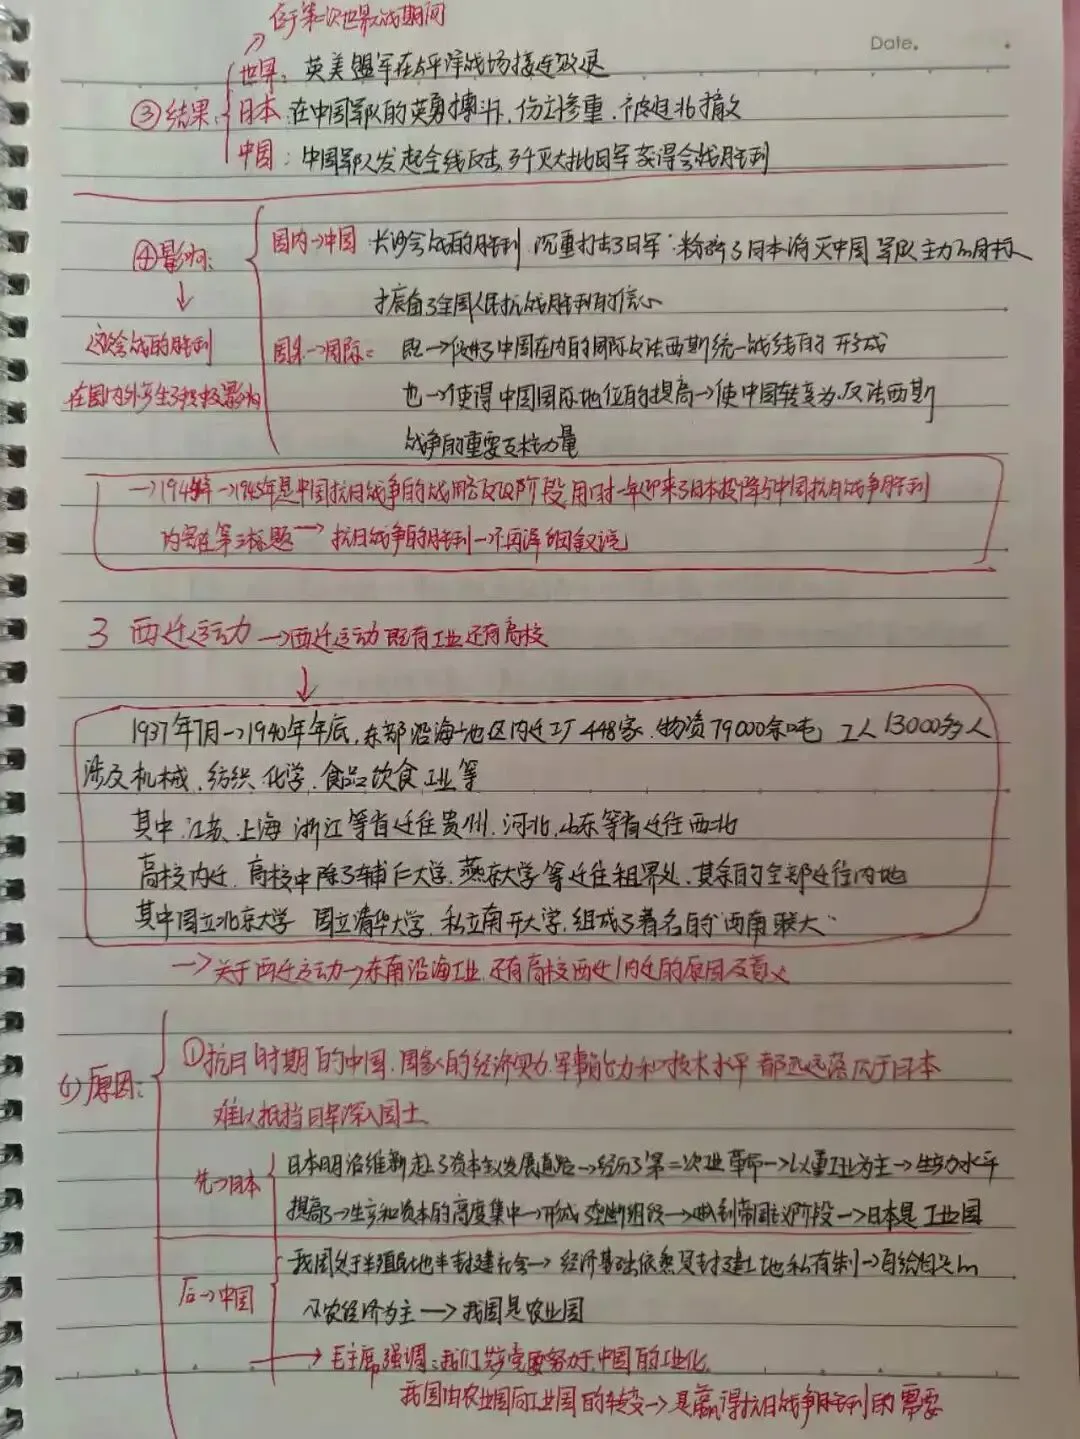 位于第二次世界大战期间
Date.
世界：英美盟军在太平洋战场接连败退
③结果：日本：在中国军队的英勇搏斗，伤亡惨重，被迫北撤
中国：中国军队发起全线反击，歼灭大批日军 获得会战胜利
④影响：国内→中国：长沙会战的胜利，沉重打击了日军，粉碎了日本消灭中国军队主力的目标
振奋了全国人民抗战胜利的信心
这次会战的胜利
国外→国际：既→促进了中国在内的国际反法西斯统一战线的形成
在国内外产生了积极影响
也→使得中国国际地位的提高→使中国转变为反法西斯
战争的重要支柱力量
→1945年是中国抗日战争的战略反攻阶段 用时一年迎来了日本投降与中国抗日战争胜利
内容在第三标题→抗日战争的胜利→不再详细叙说
3 西迁运动→西迁运动既有工业还有高校
1937年7月→1940年年底，东部沿海地区内迁工厂448家，物资79000余吨，工人13000多人
涉及机械、纺织、化学、食品饮食工业等
其中，江苏、上海 浙江等省迁往贵州，河北、山东等省迁往西北
高校内迁，高校中除了辅仁大学、燕京大学等迁往租界处，其余的全部迁往内地
其中国立北京大学 国立清华大学，私立南开大学，组成了著名的"西南联大"
→关于西迁运动→东南沿海工业，还有高校西迁/内迁的原因及意义
(1)原因：①抗日时期的中国，国家的经济实力，军事能力和技术水平 都远远落后于日本
难以抵挡日军深入国土
日本明治维新走上了资本主义发展道路→经历了第二次工业革命→以重工业为主→生产力水平
先→日本
提高→生产和资本的高度集中→形成了垄断组织→ 到帝国主义阶段→日本是工业国
我国处于半殖民地半封建社会→经济基础依然是封建土地私有制→自给自足的
后→中国
小农经济为主→我国是农业国
→毛主席强调：我们共产党要努力于中国的工业化
我国由农业国向工业国的转变→是赢得抗日战争胜利的需要